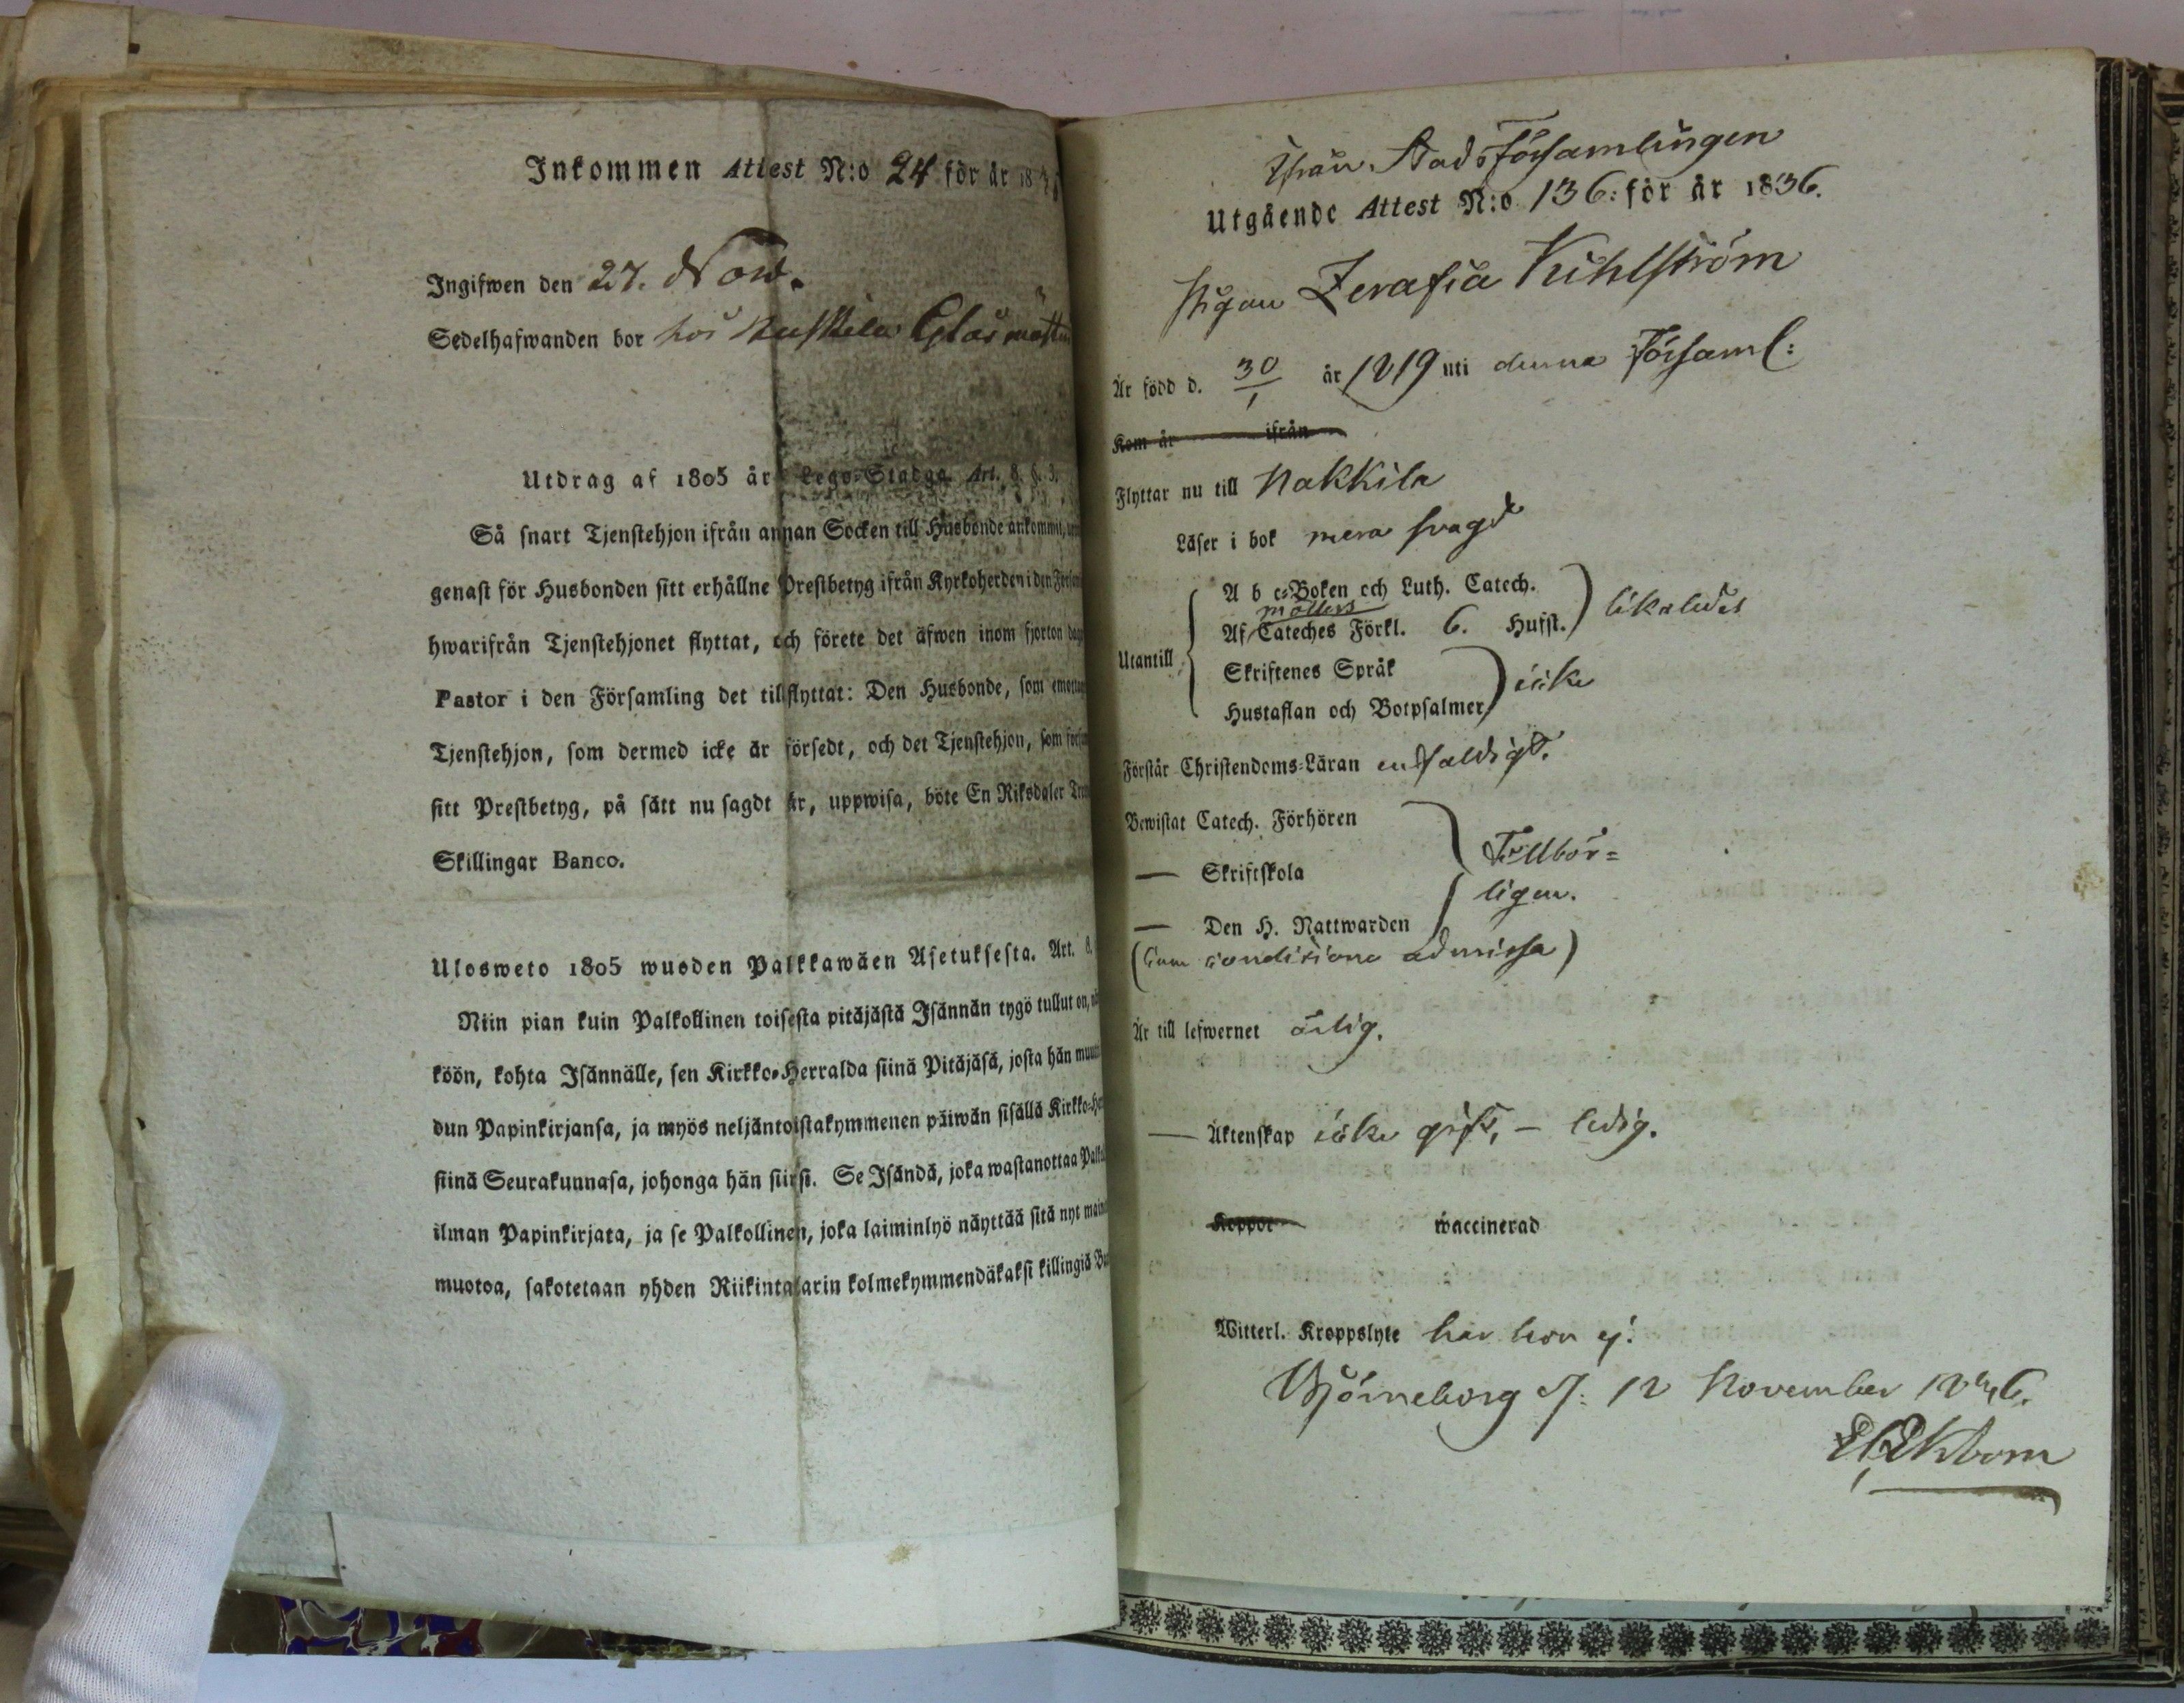 Inkommen Attest N:o 24 för år 18
Ingifwen den 27. Now.
Sedelhafwanden bor hos Glasmäst
Utdrag af 1805 års Lego-Stadga Art. 8. §. 3.
Så snart Tjenstehjon ifrån annan Socken till Husbonde ankommit,
genast för Husbonden sitt erhållne Prestbetyg ifrån Kyrkoherden i den
hwarifrån Tjenstehjonet flyttat, och förete det äfwen inom fjorton
Pastor i den Församling det tilflyttat: Den Husbonde, som
Tjenstehjon, som dermed icke är försedt, och det Tjenstehjon, som
sitt Prestbetyg, på sätt nu sagdt är, uppwisa, böte En Riksdaler
Skillingar Banco.
Ulosweto 1805 wuoden Palkkawäen Asetuksesta. Art. 8.
Niin pian kuin Palkollinen toisesta pitäjästä Isännän tygö tullut on,
köön, kohta Isännälle, sen Kirkko-Herralda siinä Pitäjäsä, josta hän
dun Papinkirjansa, ja myös neljäntoistakymmenen päiwän sisällä Kirkko-
siinä Seurakunnasa, johonga hän siirsi. Se Isändä, joka wastanottaa
ilman Papinkirjata, ja se Palkollinen, joka laiminlyö näyttää sitä nyt
muotoa, sakotetaan yhden Riikintalarin kolmekymmendäkaksi killingiä
Ifrån Stadsförsamlingen
Utgående Attest N:o 136: för år 1836.
Pigan Serafia Kihlström
Är född d. 30/1 år 1819 uti denna Församl:
Kom år ifrån
Flyttar nu till Nakkila
Läser i bok mera svagt
A b c-Boken och Luth. Catech.
möllers
Af Cateches Förkl. 6. Hufst. likaledes
Utantill
Skriftenes Språk
Hustaflan och Botpsalmer icke
Förstår Christendoms-Läran enfaldigt.
Bewistat Catech. Förhören
— Skriftskola Tillbör=
ligen.
— Den H. Nattwarden
(sum conditione admissa)
Är till lefwernet ärlig.
— Äktenskap icke gift, — ledig.
Koppor waccinerad
Witterl. Kroppslyte har hon ej.
Björneborg d. 12 November 1846.
Ekbom